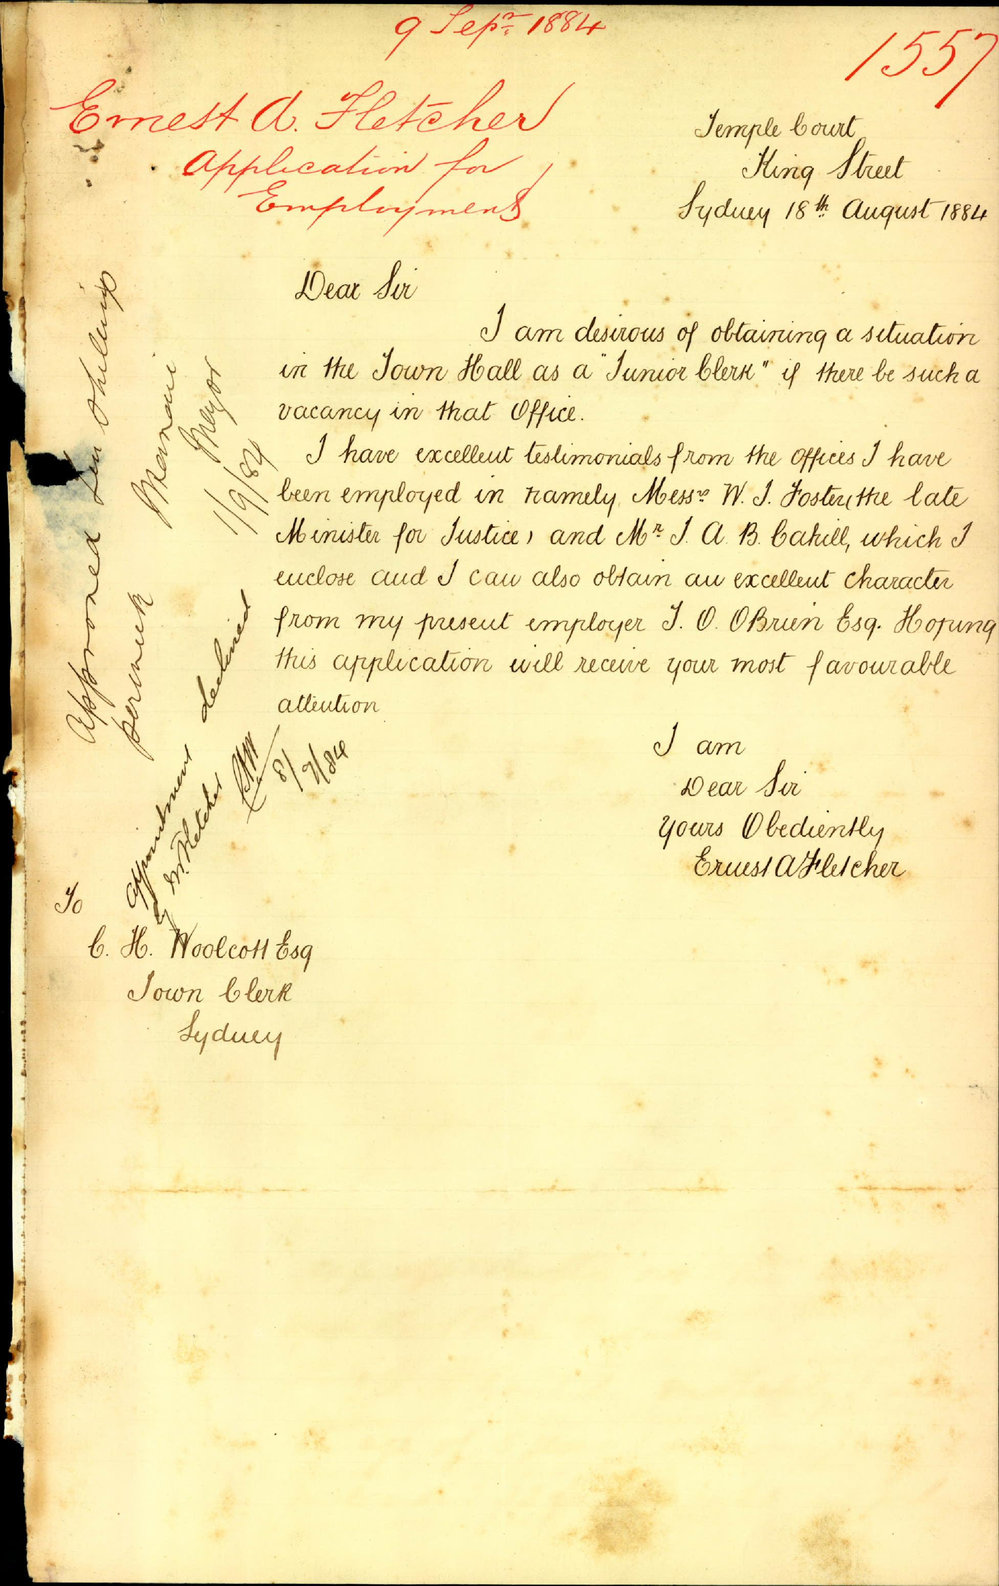 9 Sepr. 1884
1557
Ernest A. Fletcher
Application for
Employment
Temple Court
King Street
Sydney 18th August 1884
Dear Sir
I am desirous of obtaining a situation
in the Town Hall as a "Junior Clerk" if there be such a
vacancy in that Office.
I have excellent testimonials from the offices I have
been employed in namely Messrs W. J. Foster, (the late
Minister for Justice) and Mr J. A. B. Cahill, which I
enclose and I can also obtain an excellent character
from my present employer J. O. OBrien Esq. Hoping
this application will receive your most favourable
attention
I am
Dear Sir
Yours Obediently
Ernest A Fletcher
Approved Ten shillings
per week
Mayor
1/9/84
Appointment declined
by Mr Fletcher
8/9/84
To
C. H. Woolcott Esq
Town Clerk
Sydney